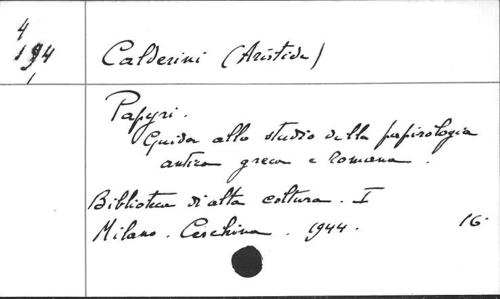 4
194
1
Calderini (Aristide)
Papyri.
Guida allo studio della papirologia
antica greca e romana.
Biblioteca di alta coltura. I
Milano. Ceschina. 1944. 16.